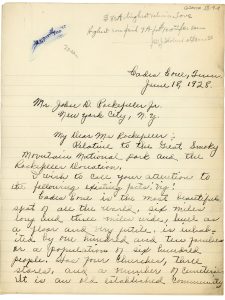 Cades Cove, Tenn
June 18, 1928.
Mr. John D. Rockefeller Jr.
New York City, N.Y.
My Dear Mr Rockefeller:-
Relative to the Great Smoky
Mountain National park and the
Rockefeller Donation,
I wish to call your attention to
the following
Cades Cove is the most beautiful
spot of all the world, six miles
long and three miles wide, level as
a floor and very fertile, is inhab-
ited by one hundred and families
or a population of six hundred
people. Has four churches, three
stores, and a number of cemeteries
It is an old established community